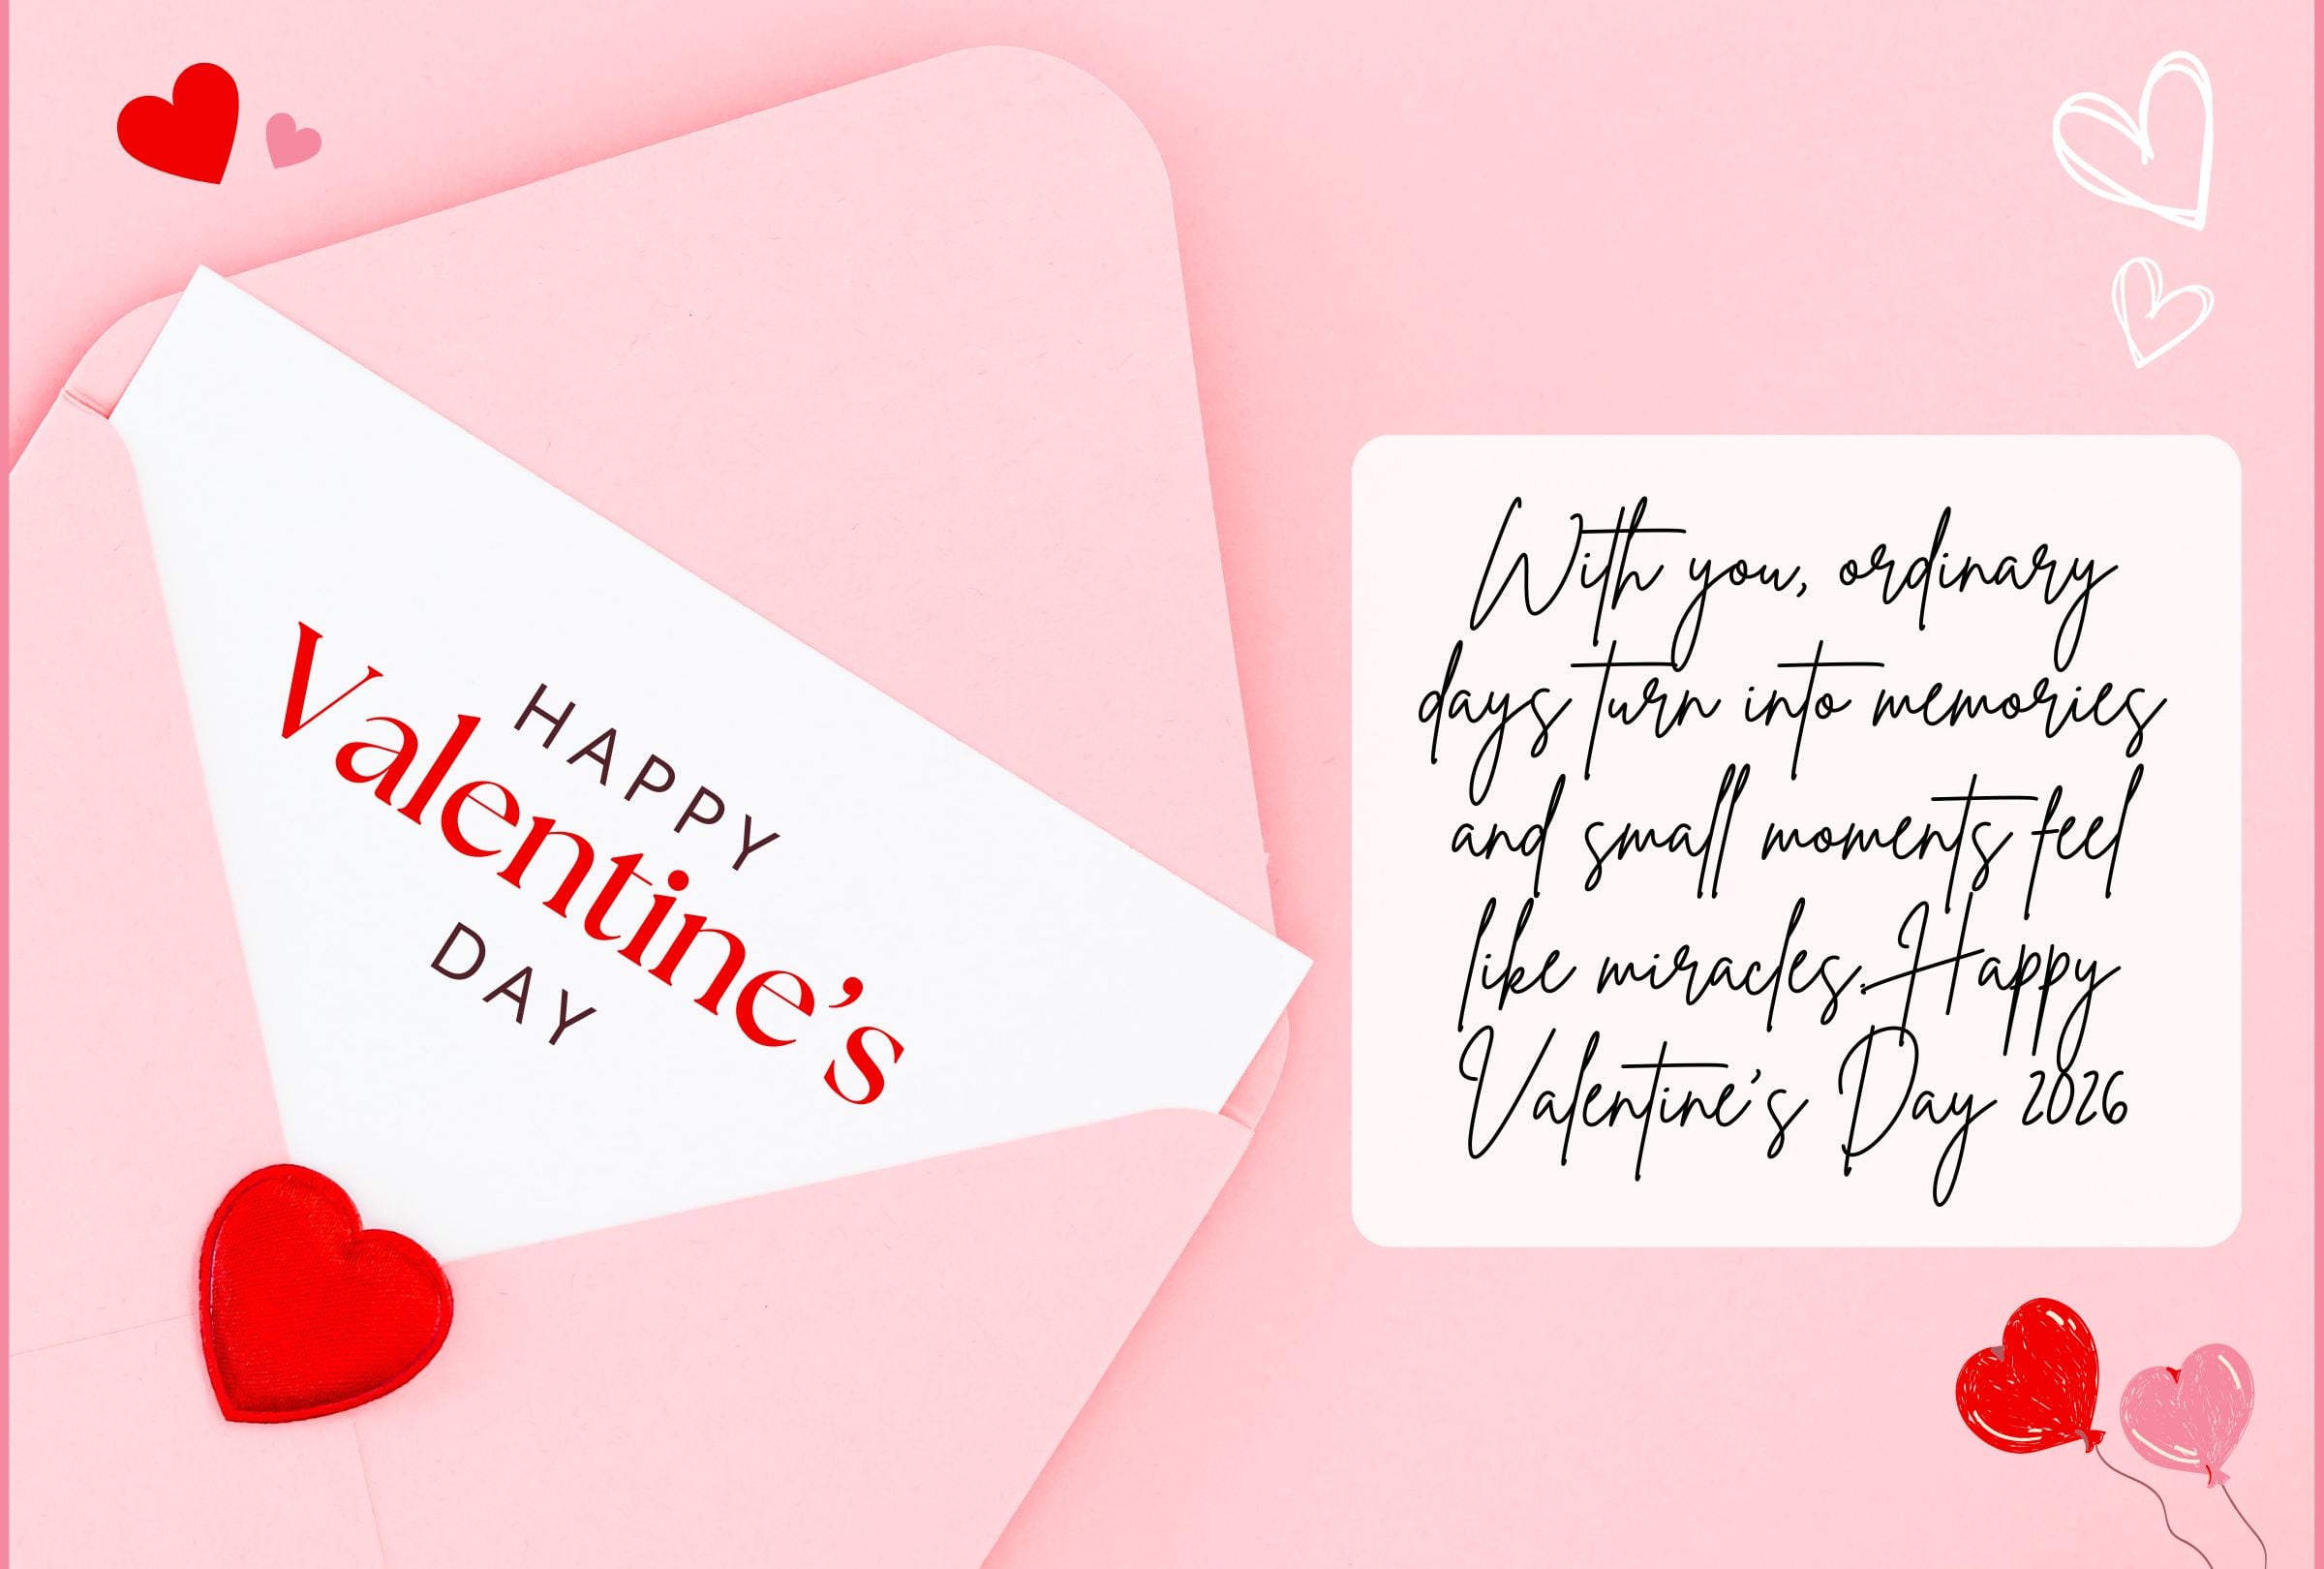 HAPPY
Valentine's
DAY
With you, ordinary
days turn into memories
and small moments feel
like miracles. Happy
Valentine's Day 2026